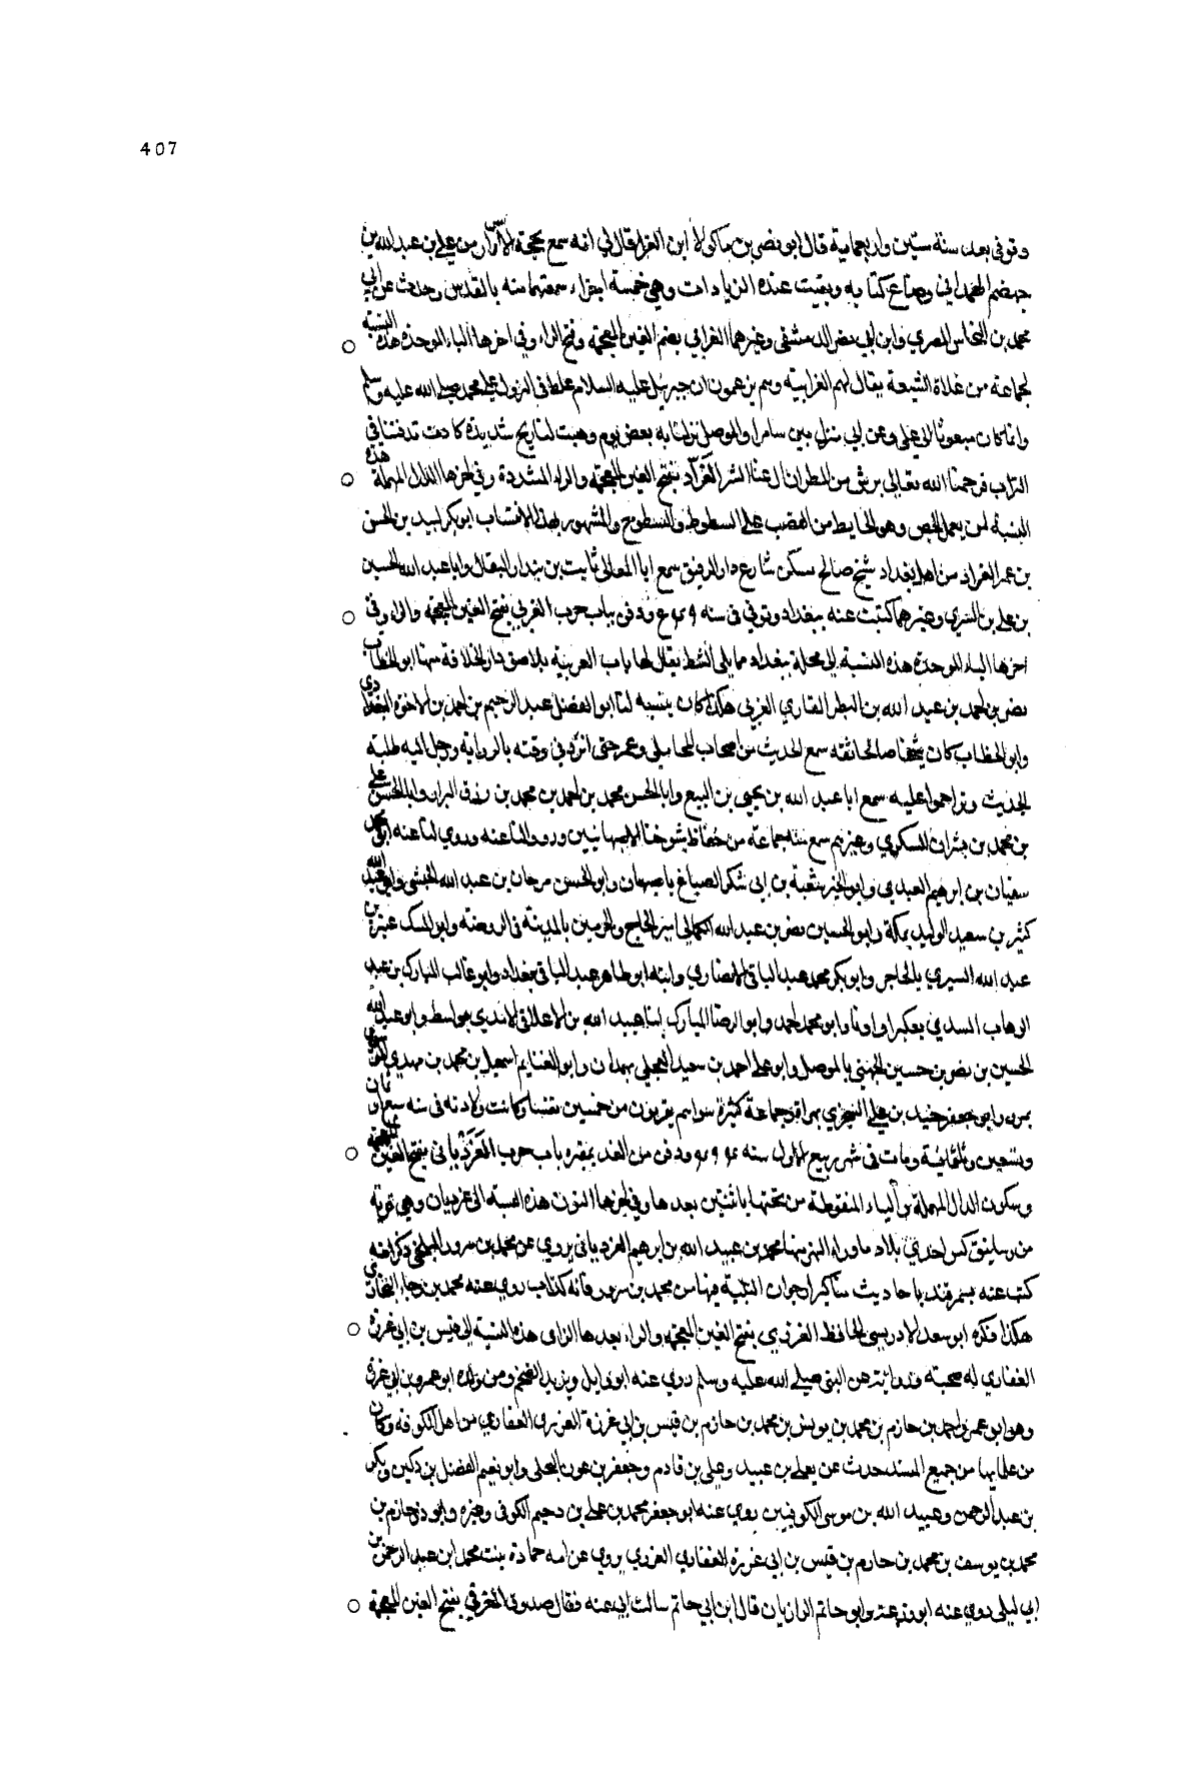 407
وتوفي بعد سنة ستين واربعماية قال ابو نصر بن ماكولا ابن الغراء قال لي انه سمع بهجة الاسرار من علي بن عبد الله بن
جهضم الهمداني وضاع كتابه وبقيت عنده الزيادات وهي خمسة اجزاء سمعتها منه بالقدس وحدث عن ابي
محمد بن النحاس المصري وابن ابي نصر الدمشقي وغيرهما الغرابي بضم الغين المعجمة وفتح الراء وفي اخرها الباء الموحدة هذه النسبة
لجماعة من غلاة الشيعة يقال لهم الغرابية وهم يزعمون ان جبريل عليه السلام غلط في النزول على محمد صلى الله عليه وسلم
وانما كان مبعوثا الى علي وعن لي منزل بين سامرا والموصل نزلنا به بعض يوم وهبت لنا ريح شديدة كادت تدفننا في
التراب فرحمنا الله تعالى برش من المطر ازال عنا الشر الغراد بفتح الغين المعجمة والراء المشددة وفي اخرها الدال المهملة هذه
النسبة لمن يعمل الخص وهو الحايط من القصب على السطوط والسطوح والمشهور بهذا الانتساب ابو بكر بن الحسن
بن عمر الغراد من اهل بغداد شيخ صالح سكن شارع دار الرقيق سمع ابا المعالي ثابت بن بندار البقال وابا عبد الله الحسين
بن علي بن البسري وغيرهما كتبت عنه ببغداد وتوفي في سنة ودفن بباب حرب الغربي بفتح الغين المعجمة والراء وفي
اخرها الباء الموحدة هذه النسبة الى محلة ببغداد مما يلي الشط يقال لها باب الغربية بلاصق دار الخلافة منها ابو الخطاب
نصر بن احمد بن عبد الله بن البطر القاري الغربي هكذا كان ينسبه لنا ابو الفضل عبد الرحيم بن احمد بن الاخوة البغدادي
وابو الخطاب كان شيخا صالحا ثقة سمع الحديث من اصحاب المحاملي وعمر حتى انفرد في وقته بالرواية ورحل اليه طلبة
الحديث وتزاحموا عليه سمع ابا عبد الله بن يحيى بن البيع وابا الحسن محمد بن احمد بن محمد بن رزق البزاز وابا الحسن علي
بن محمد بن بشران السكري وغيرهم سمع منه جماعة من حفاظ شيوخنا الاصبهانيين ورووا لنا عنه وروى لنا عنه ابو محمد
سفيان بن ابرهيم العبدي وابو الخير شعبة بن ابي شكر الصباغ باصبهان وابو الحسن مرجان بن عبد الله الحبشي وابو عبد الله
كثير بن سعيد الوكيل بمكة وابو الحسين نصر بن عبد الله الكمالي امير الحاج والحرمين بالمدينة في الروضة وابو المسك عنبر بن
عبد الله السيري بالحاجر وابو بكر محمد عبد الباقي الانصاري وابنه ابو طاهر عبد الباقي ببغداد وابو غالب المبارك بن عبد
الوهاب السدي بعكبرا واوانا وابو محمد احمد وابو الرضا المبارك ابنا هبة الله بن الاعلاقي الازدي بواسط وابو عبد الله
الحسين بن نصر بن حسين الجهني بالموصل وابو علي احمد بن سعيد العجلي بهمدان وابو الغنايم اسمعيل بن محمد بن مهدي الموسوي
بمرو وابو جعفر حنبل بن علي السجزي بهراة وجماعة كثيرة سواهم يقربون من خمسين نفسا وكانت ولادته في سنة ثمان
وتسعين وثلثماية ومات في شهر ربيع الاول سنة ودفن من الغد بمقبرة باب حرب الغردياني بفتح الغين المعجمة
وسكون الدال المهملة بن الياء المنقوطة من تحتها باثنتين بعدها وفي اخرها النون هذه النسبة الى غرديان وهي قرية
من رساتيق كس احدى بلاد ما وراء النهر منها محمد بن عبيد الله بن ابرهيم الغردياني يروي عن محمد بن سرور البلخي ذكر انه
كتب عنه بسمرقند باحاديث مناكير ارجوان البلية فيها من محمد بن سرور فانه كذاب روى عنه محمد بن رجاء البخاري
هكذا ذكره ابو سعد الادريسي الحافظ الغرزي بفتح الغين المعجمة والراء بعدها الزاى هذه النسبة الى قيس بن ابي غرزة
الغفاري له صحبة ورواية عن النبي صلى الله عليه وسلم روى عنه ابو وايل ومن ولده ابو عمرو بن ابي غرزة
وهو ابو عمرو احمد بن حازم بن محمد بن يونس بن محمد بن حازم بن قيس بن ابي غرزة الغرزي الغفاري من اهل الكوفة وكان
من علمايها من جميع المسند حدث عن يعلى بن عبيد وعلي بن قادم وجعفر بن عون البجلي وابو نعيم الفضل بن دكين وبكر
بن عبد الرحمن وعبيد الله بن موسى الكوفيين روى عنه ابو جعفر محمد بن علي بن دحيم الكوفي وغيره وابو ذر حازم بن
محمد بن يوسف بن محمد بن حازم بن قيس بن ابي غرزة الغفاري الغرزي يروي عن امه حمادة بنت محمد ابن عبد الرحمن بن
ابي ليلى روى عنه ابو زرعة وابو حاتم الرازيان قال ابن ابي حاتم سالت ابي عنه فقال صدوق الغرقي بفتح الغين المعجمة